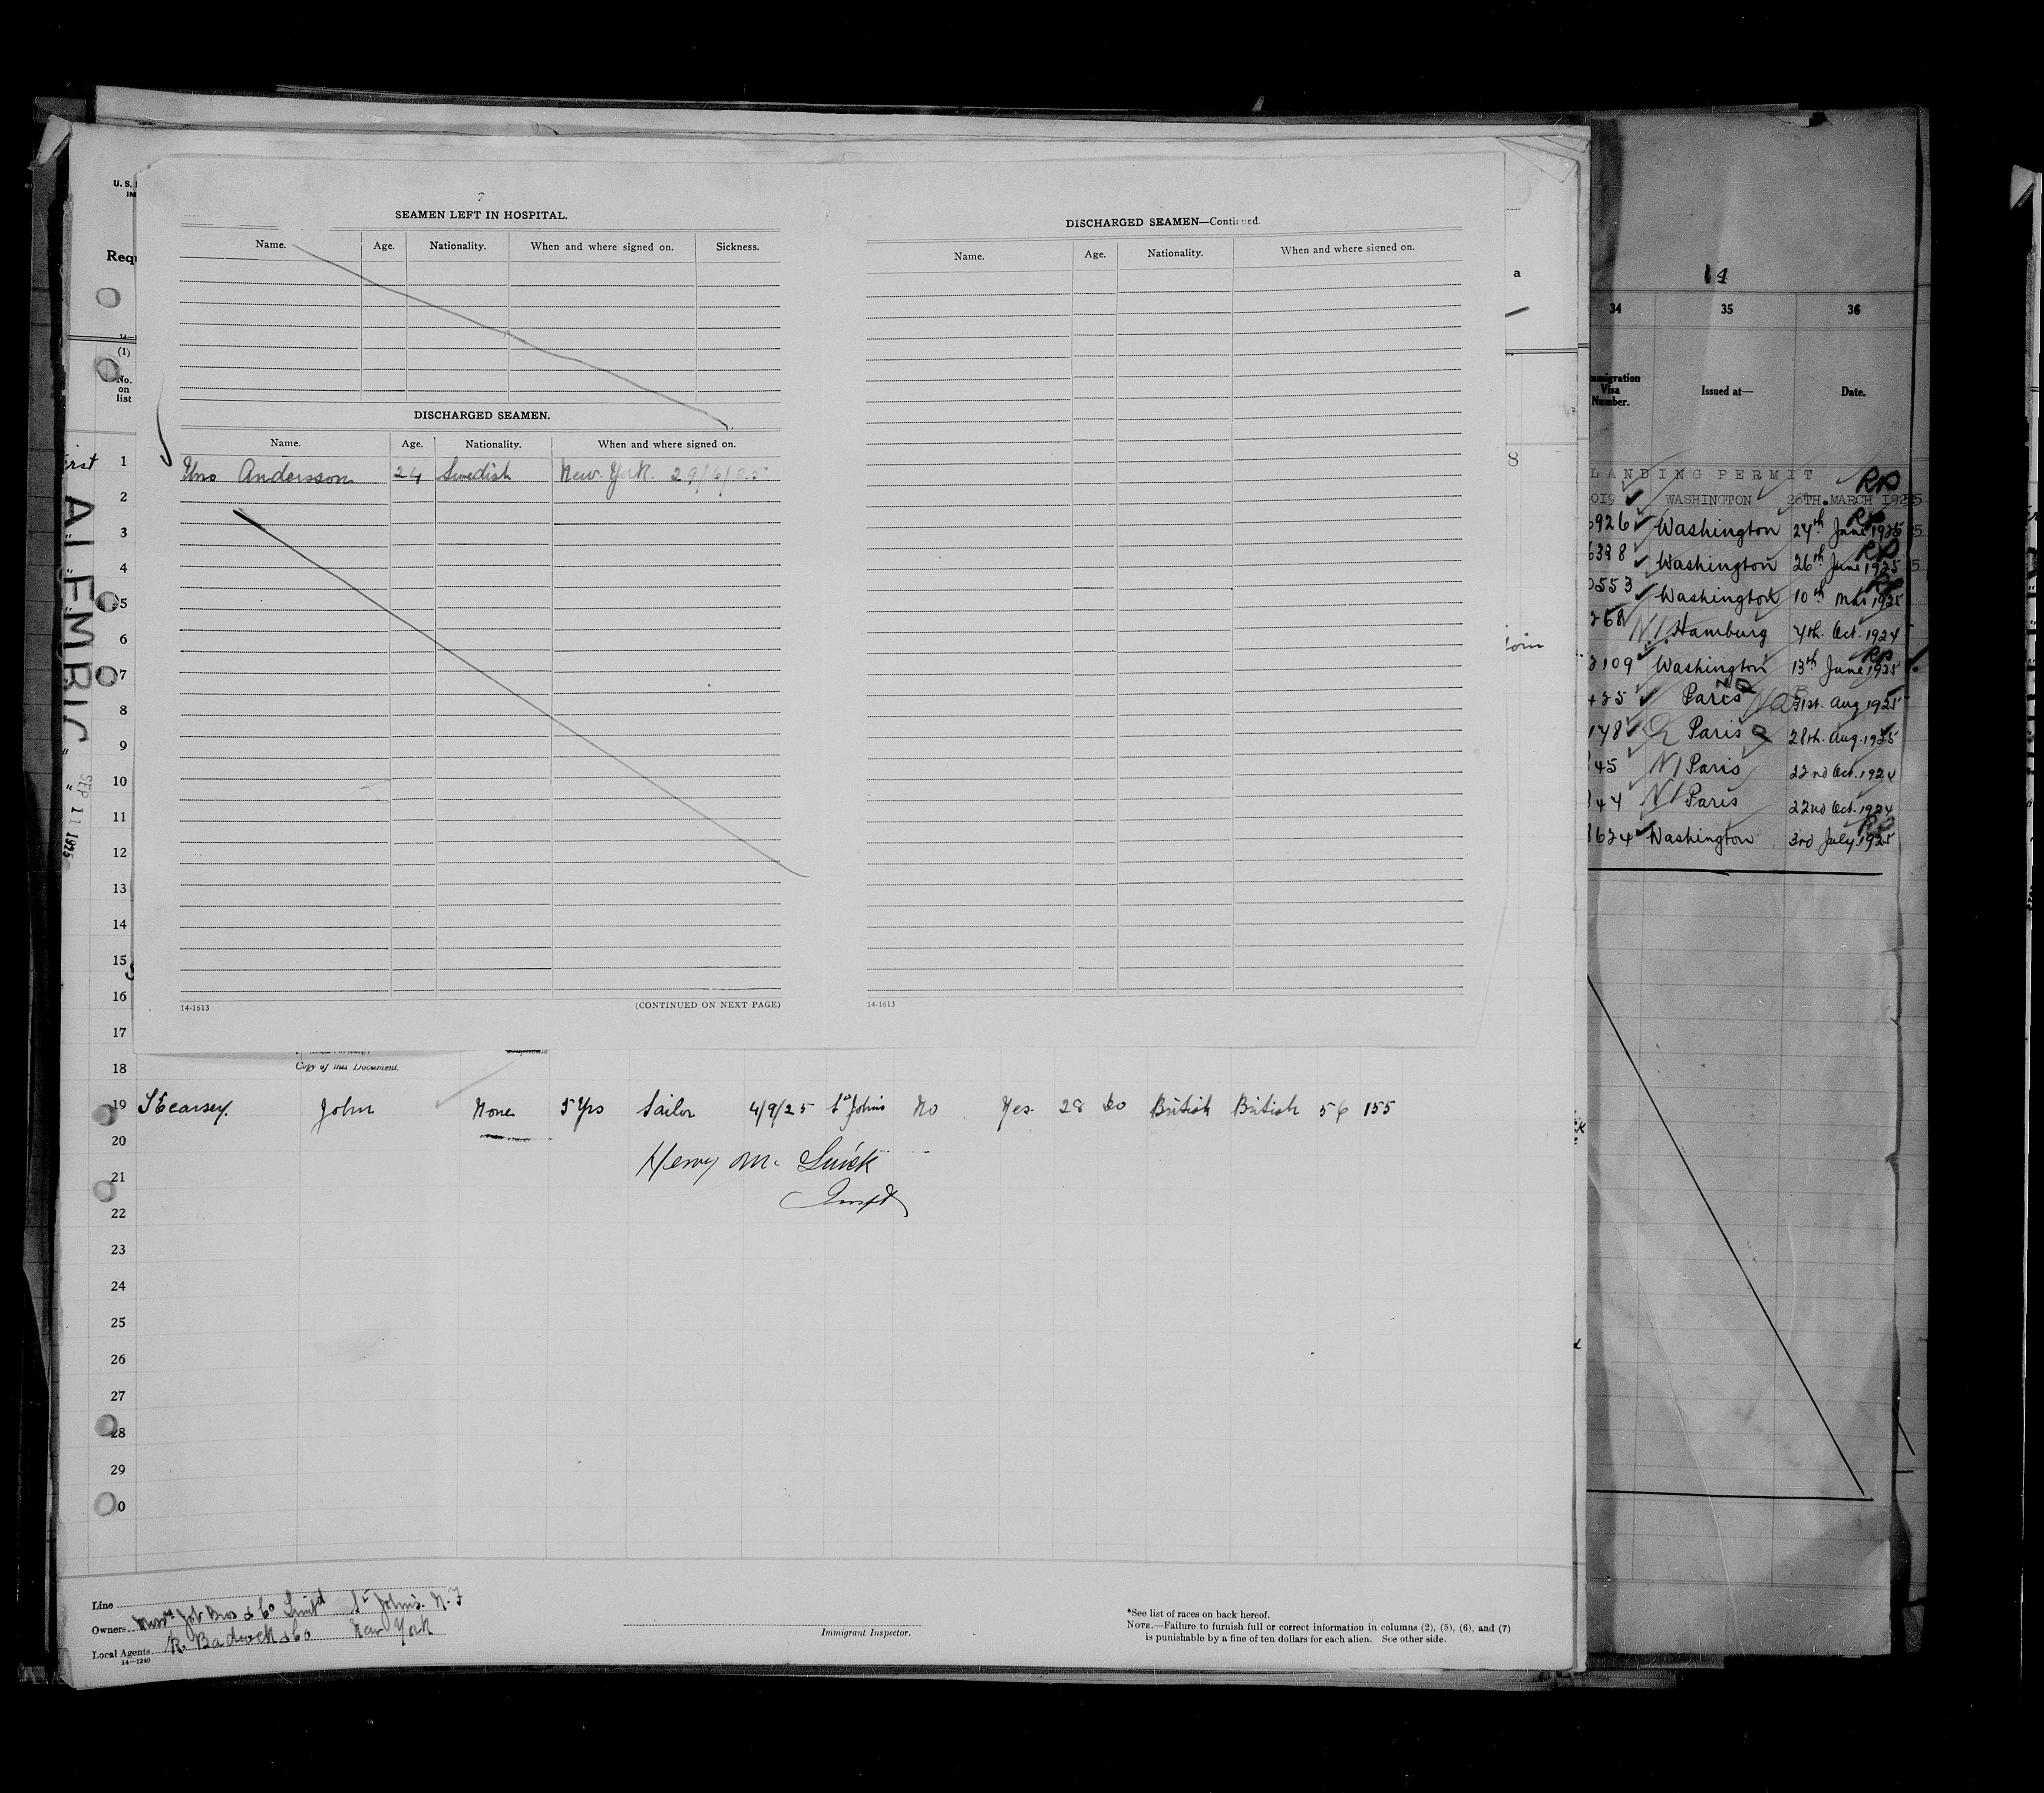 U. S.
Requ
(1)
No.
on
list
SEAMEN LEFT IN HOSPITAL.
Name. Age. Nationality. When and where signed on. Sickness.
DISCHARGED SEAMEN.
Name. Age. Nationality. When and where signed on.
Andersson 24 Swedish New York. 29/6/25
14-1613 (CONTINUED ON NEXT PAGE)
DISCHARGED SEAMEN—Continued.
Name. Age. Nationality. When and where signed on.
14-1613
a
8
ALEMBIC
SEP 11 1925
1
2
3
4
5
6
7
8
9
10
11
12
13
14
15
16
17
18
Copy of this Document.
19 John None 5 Yrs Sailor 4/9/25 St Johns No Yes. 28 do British British 5 6 155
20
Henry M.
21
Inspt
22
23
24
25
26
27
28
29
0
Line
Owners Messrs Job Bros & Co St Johns. N.F
Local Agents New York
14—1240
Immigrant Inspector.
*See list of races on back hereof.
NOTE.—Failure to furnish full or correct information in columns (2), (5), (6), and (7)
is punishable by a fine of ten dollars for each alien. See other side.
14
34 35 36
Immigration
Visa
Number. Issued at— Date.
LANDING PERMIT
019 WASHINGTON 26TH. MARCH 1925
926 Washington 24th June 1925
Washington 26th June 1925
0553 Washington 10th Mar 1925
268 N.I. Hamburg 4th. Oct. 1924
109 Washington 13th June 1925
Paris 31st. Aug 1925
148 Paris 28th. Aug. 1925
45 Paris 22nd Oct. 1924
44 Paris 22nd Oct. 1924
8624 Washington 3rd July 1925